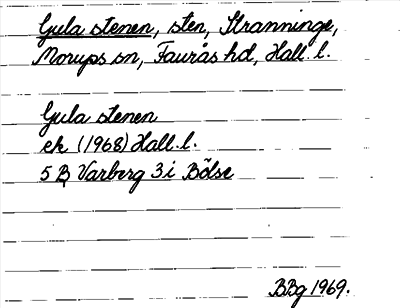 Gula stenen, sten, Stranninge,
Morups sn, Faurås hd, Hall. l.
Gula stenen
ek (1968) Hall. l.
5 B Varberg 3 i Bölse
BBg 1969.